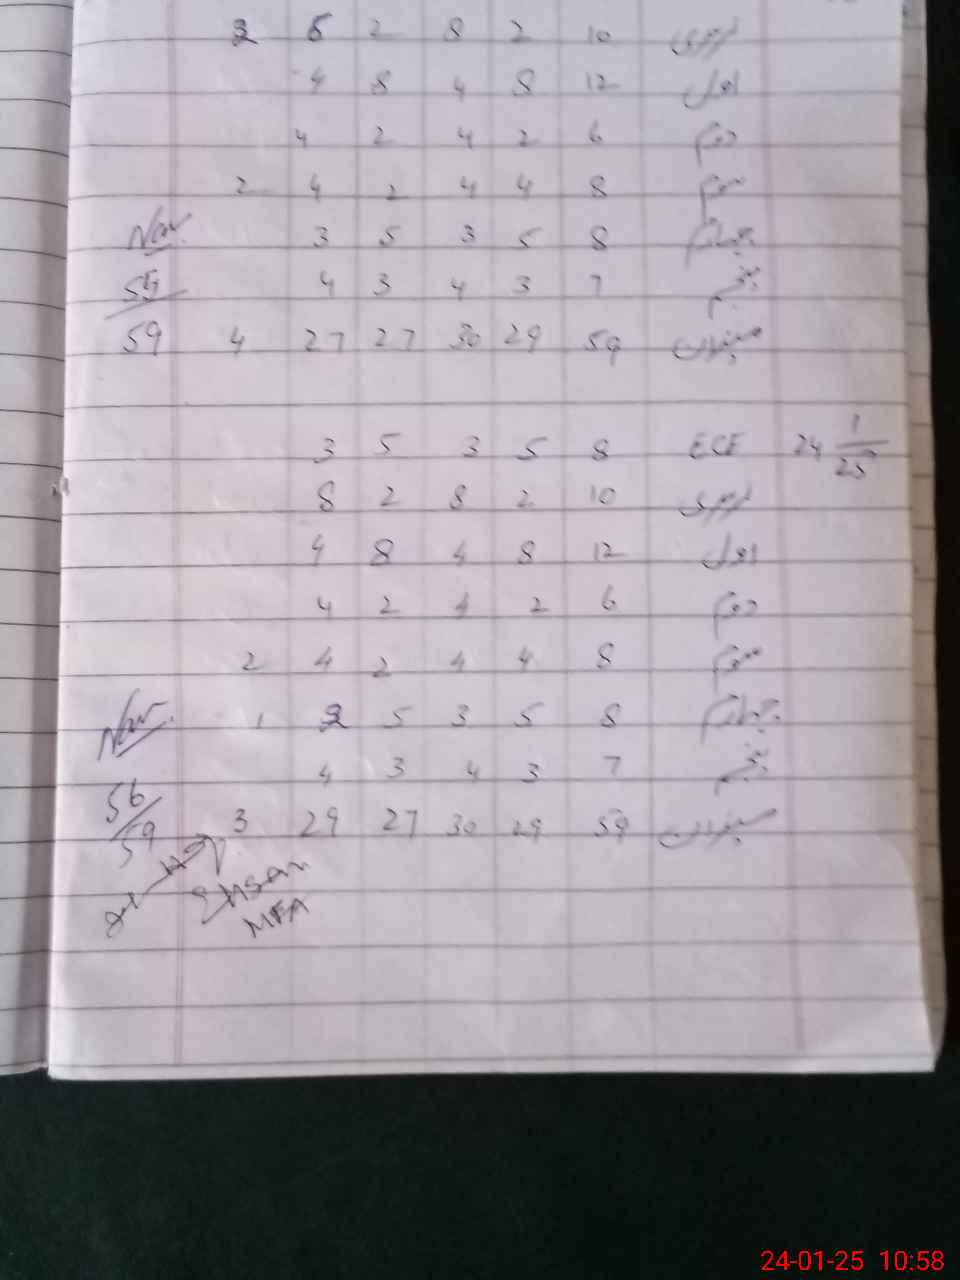 2 6 2 8 2 10 نرسری
4 8 4 8 12 اول
4 2 4 2 6 دوم
2 4 2 4 4 8 سوم
3 5 3 5 8 چہارم
55 4 3 4 3 7 پنجم
59 4 27 27 30 29 59 میزان
3 5 3 5 8 ECE 24 1/25
8 2 8 2 10 نرسری
4 8 4 8 12 اول
4 2 4 2 6 دوم
2 4 2 4 4 8 سوم
1 2 5 3 5 8 چہارم
4 3 4 3 7 پنجم
56/59 3 29 27 30 29 59 میزان
Ehsan
MEA
24-01-25 10:58